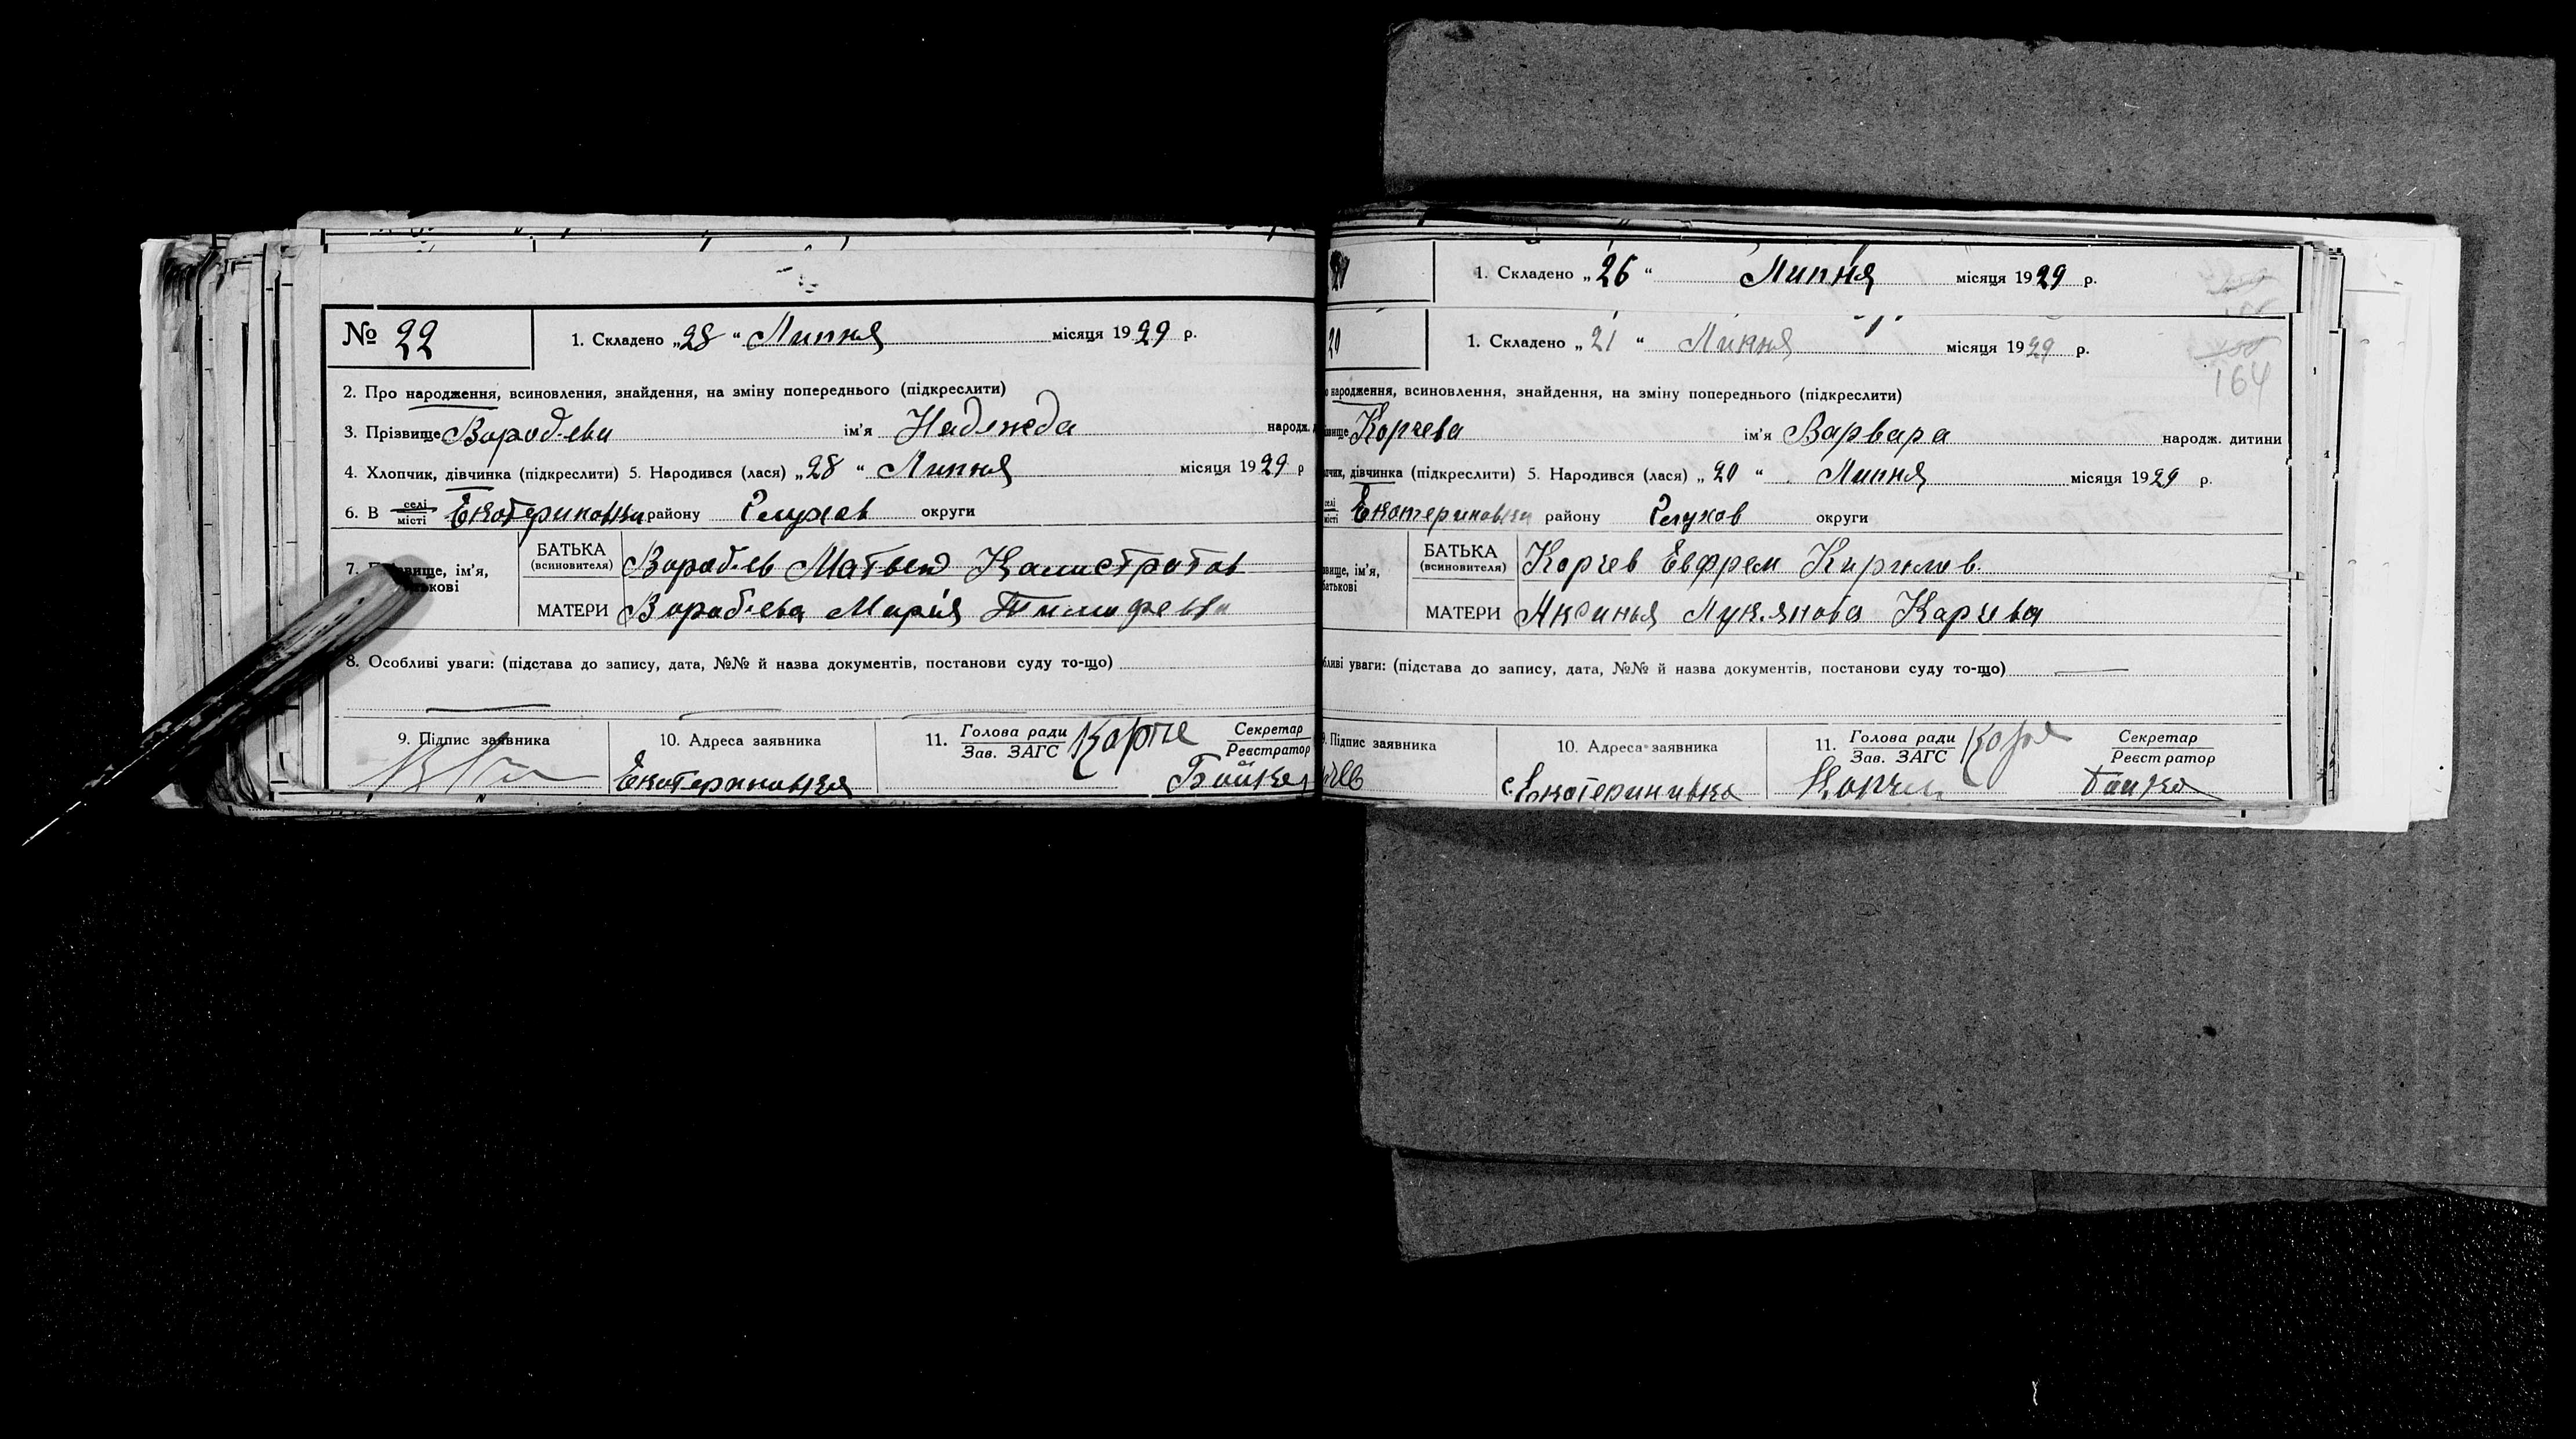 № 22
1. Складено „28“ Липня місяця 1929 р.
2. Про народження, всиновлення, знайдення, на зміну попереднього (підкреслити)
3. Прізвище Воробьева ім'я Надежда народж.
4. Хлопчик, дівчинка (підкреслити) 5. Народився (лася) „28“ Липня місяця 1929 р
6. В селі місті Екатериновки району Глухов округи
7. ім'я,
БАТЬКА (всиновителя) Воробьев Матвей Калистратов
МАТЕРИ Воробьева Марія Тимофеевна
8. Особливі уваги: (підстава до запису, дата, №№ й назва документів, постанови суду то-що)
9. Підпис заявника
10. Адреса заявника
11. Голова ради Зав. ЗАГС
Секретар Реєстратор
Екатериновка
1. Складено „26“ Липня місяця 1929 р.
20 1. Складено „21“ Липня місяця 1929 р.
164
народження, всиновлення, знайдення, на зміну попереднього (підкреслити)
Корчева ім'я Варвара народж. дитини
дівчинка (підкреслити) 5. Народився (лася) „20“ Липня місяця 1929 р.
селі Екатериновки району Глухов округи
ім'я,
БАТЬКА (всиновителя) Корчев Евфрем Кирилов.
МАТЕРИ Аксинья Лукянова Карчева
уваги: (підстава до запису, дата, №№ й назва документів, постанови суду то-що)
Підпис заявника
10. Адреса заявника
11. Голова ради Зав. ЗАГС
Секретар Реєстратор
Екатериновка